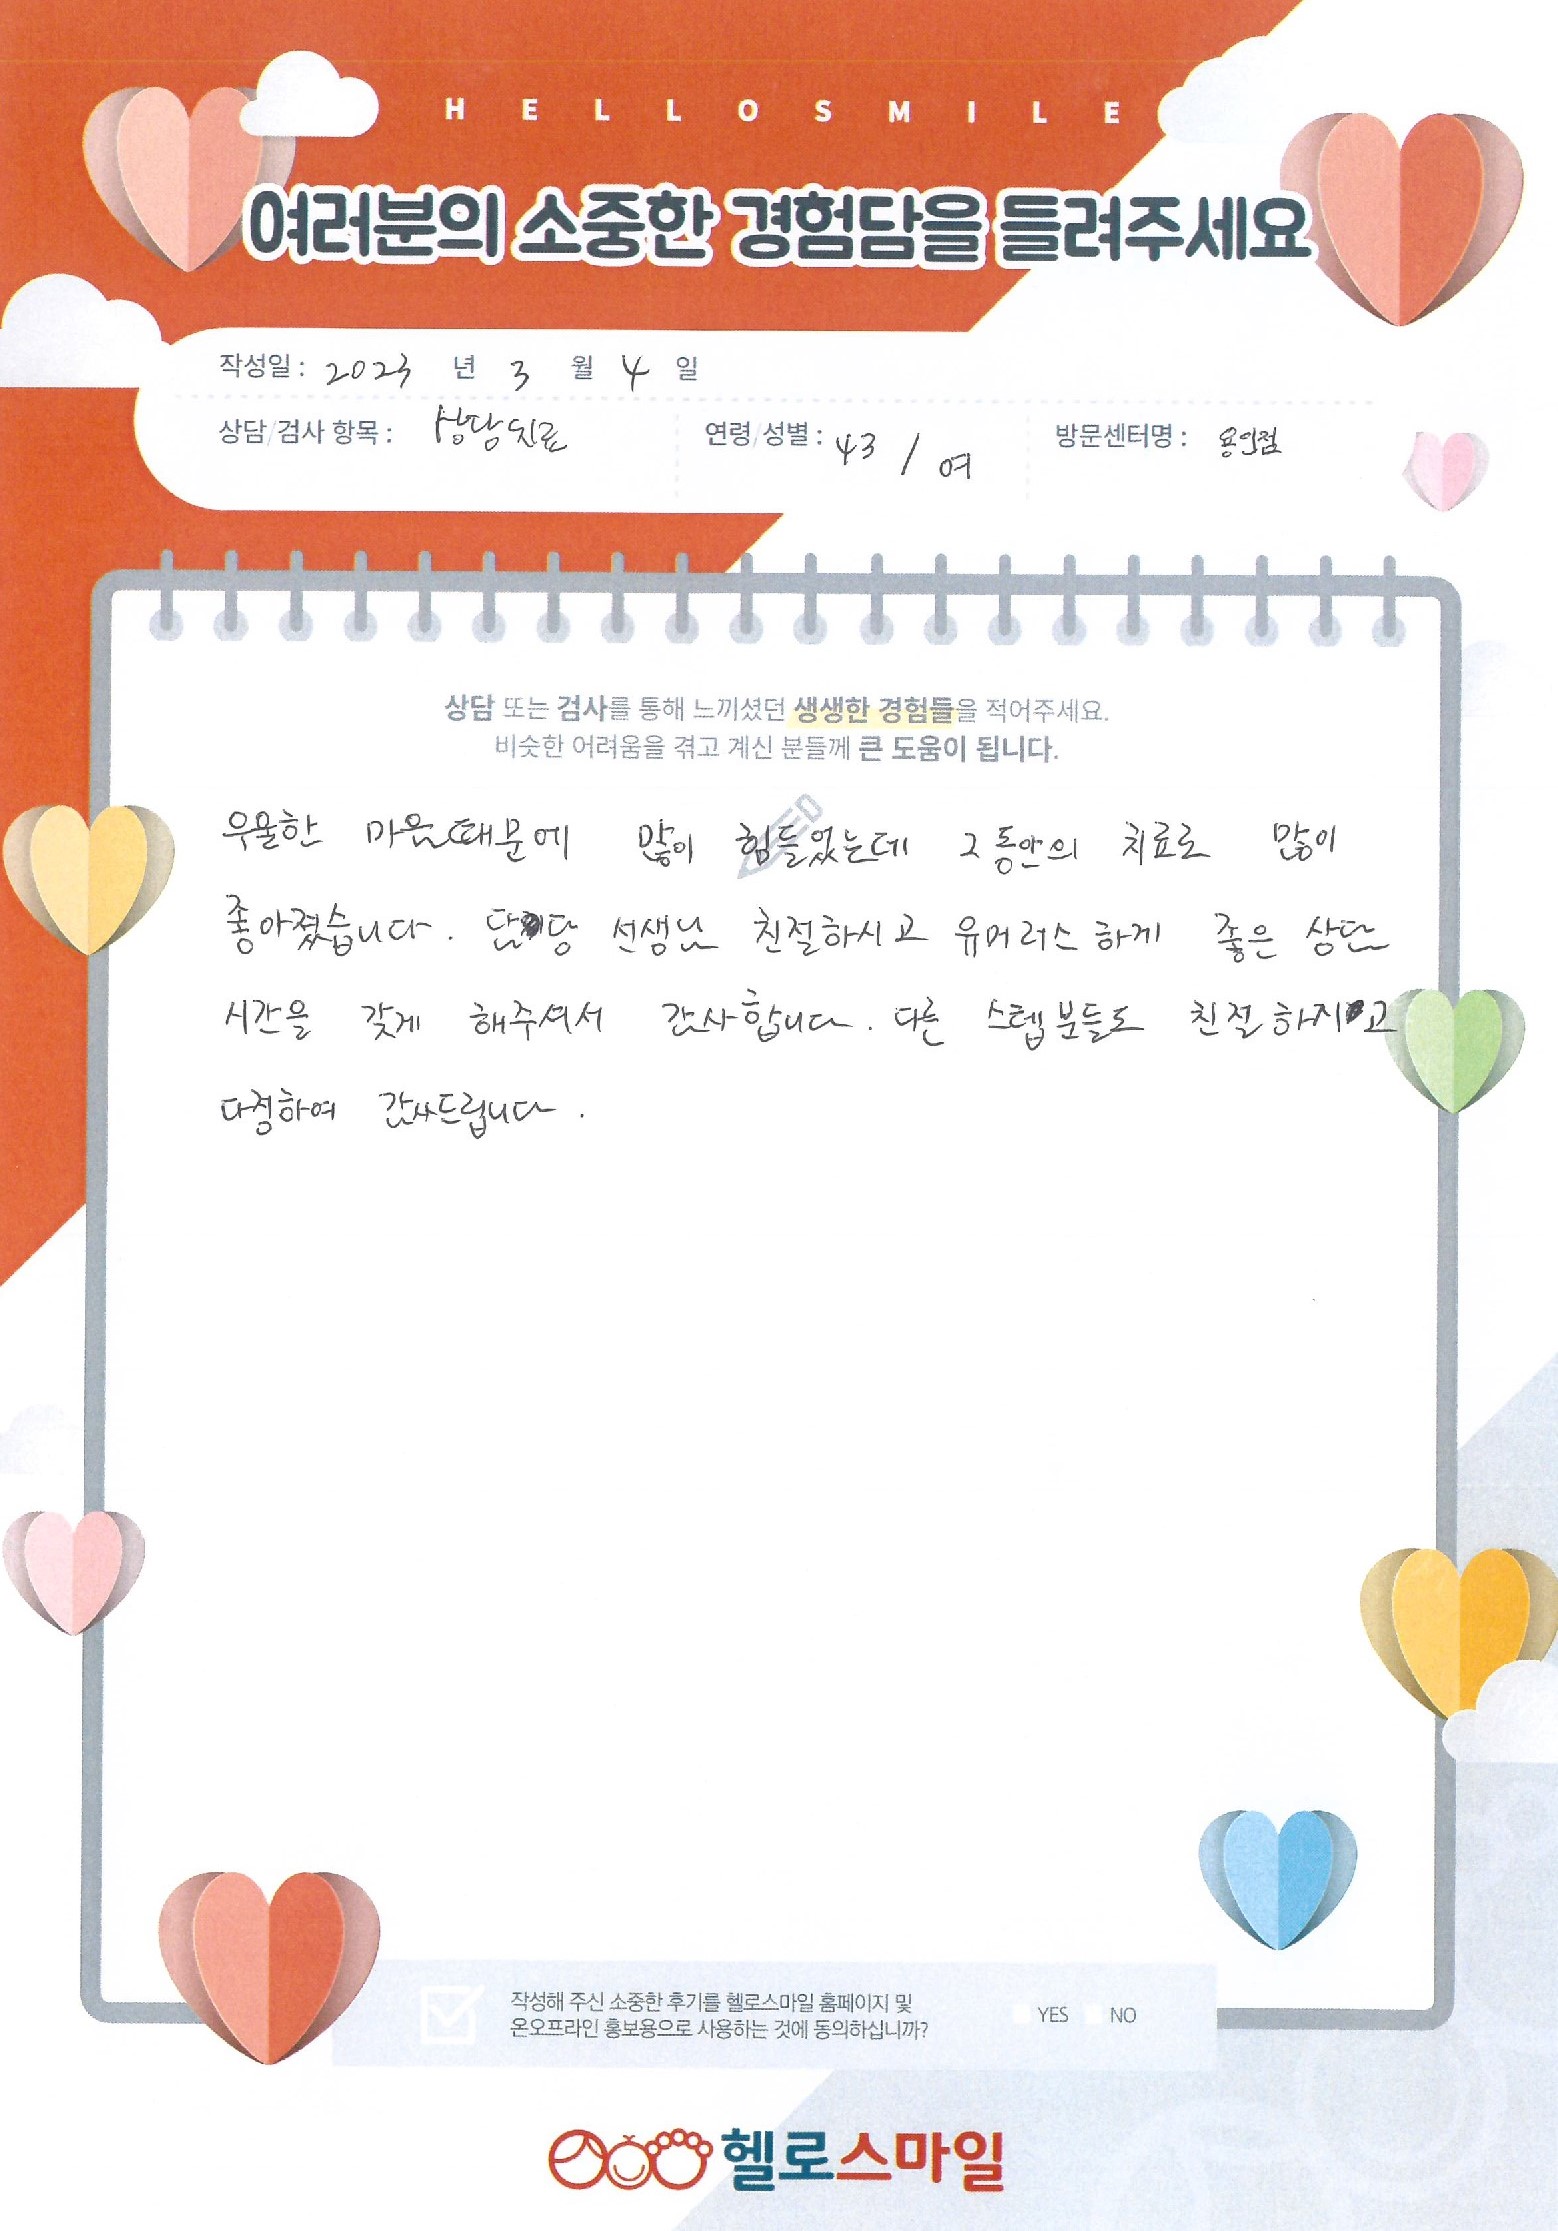 HELLOSMILE
여러분의 소중한 경험담을 들려주세요
작성일 : 2023 년 3 월 4 일
상담/검사 항목 : 상담치료 연령/성별 : 43 / 여 방문센터명 : 용인점
상담 또는 검사를 통해 느끼셨던 생생한 경험들을 적어주세요.
비슷한 어려움을 겪고 계신 분들께 큰 도움이 됩니다.
우울한 마음때문에 많이 힘들었는데 그동안의 치료로 많이
좋아졌습니다. 담당 선생님 친절하시고 유머러스하게 좋은 상담
시간을 갖게 해주셔서 감사합니다. 다른 스텝분들도 친절하시고
다정하여 감사드립니다.
작성해 주신 소중한 후기를 헬로스마일 홈페이지 및
온오프라인 홍보용으로 사용하는 것에 동의하십니까? YES NO
헬로스마일